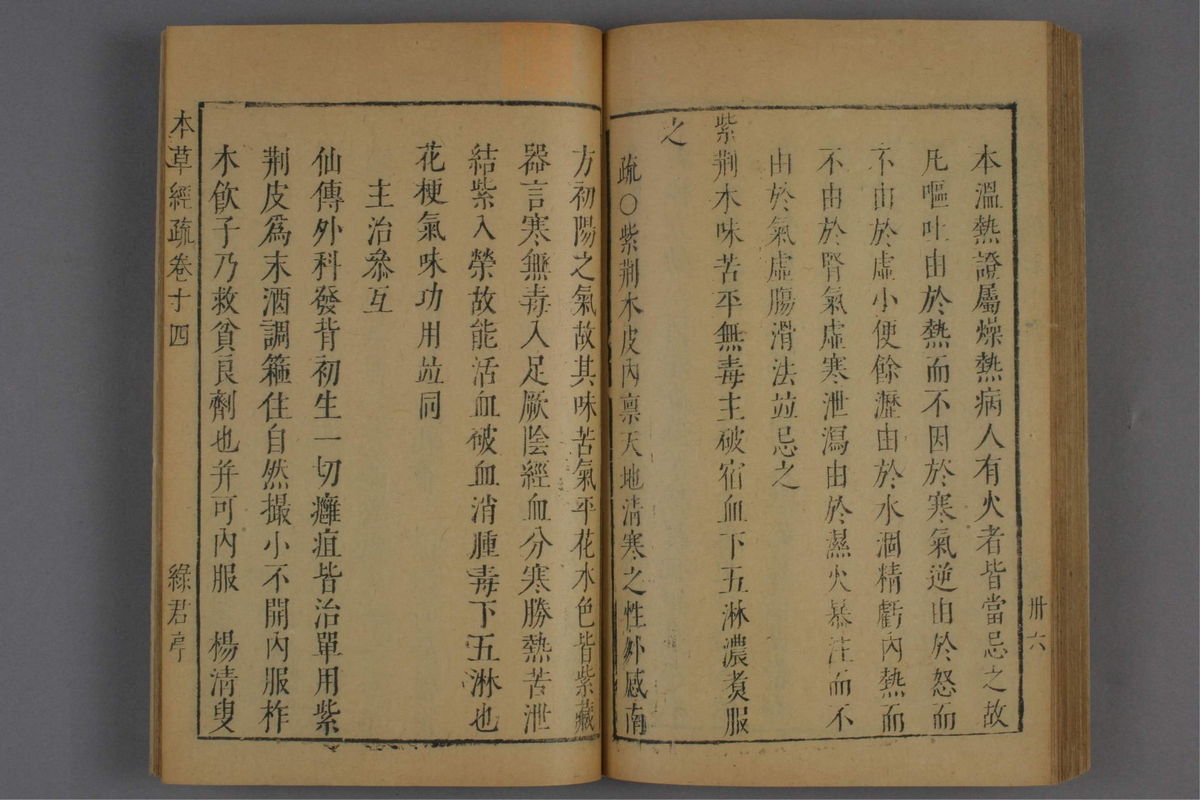 本溫熱證屬燥熱病人有火者皆當忌之故
凡嘔吐由於熱而不因於寒氣逆由於怒而
不由於虛小便餘瀝由於水涸精虧內熱而
不由於腎氣虛寒泄瀉由於濕火暴注而不
由於氣虛腸滑法並忌之
紫荆木味苦平無毒主破宿血下五淋濃煑服
之
疏〇紫荆木皮內禀天地清寒之性外感南
卅六
方初陽之氣故其味苦氣平花木色皆紫藏
器言寒無毒入足厥陰經血分寒勝熱苦泄
結紫入榮故能活血破血消腫毒下五淋也
花梗氣味功用並同
主治叅互
仙傳外科發背初生一切癰疽皆治單用紫
荆皮爲末酒調箍住自然撮小不開內服柞
木飲子乃救貧良劑也并可內服　楊清叟
本草經疏卷十四　綠君亭